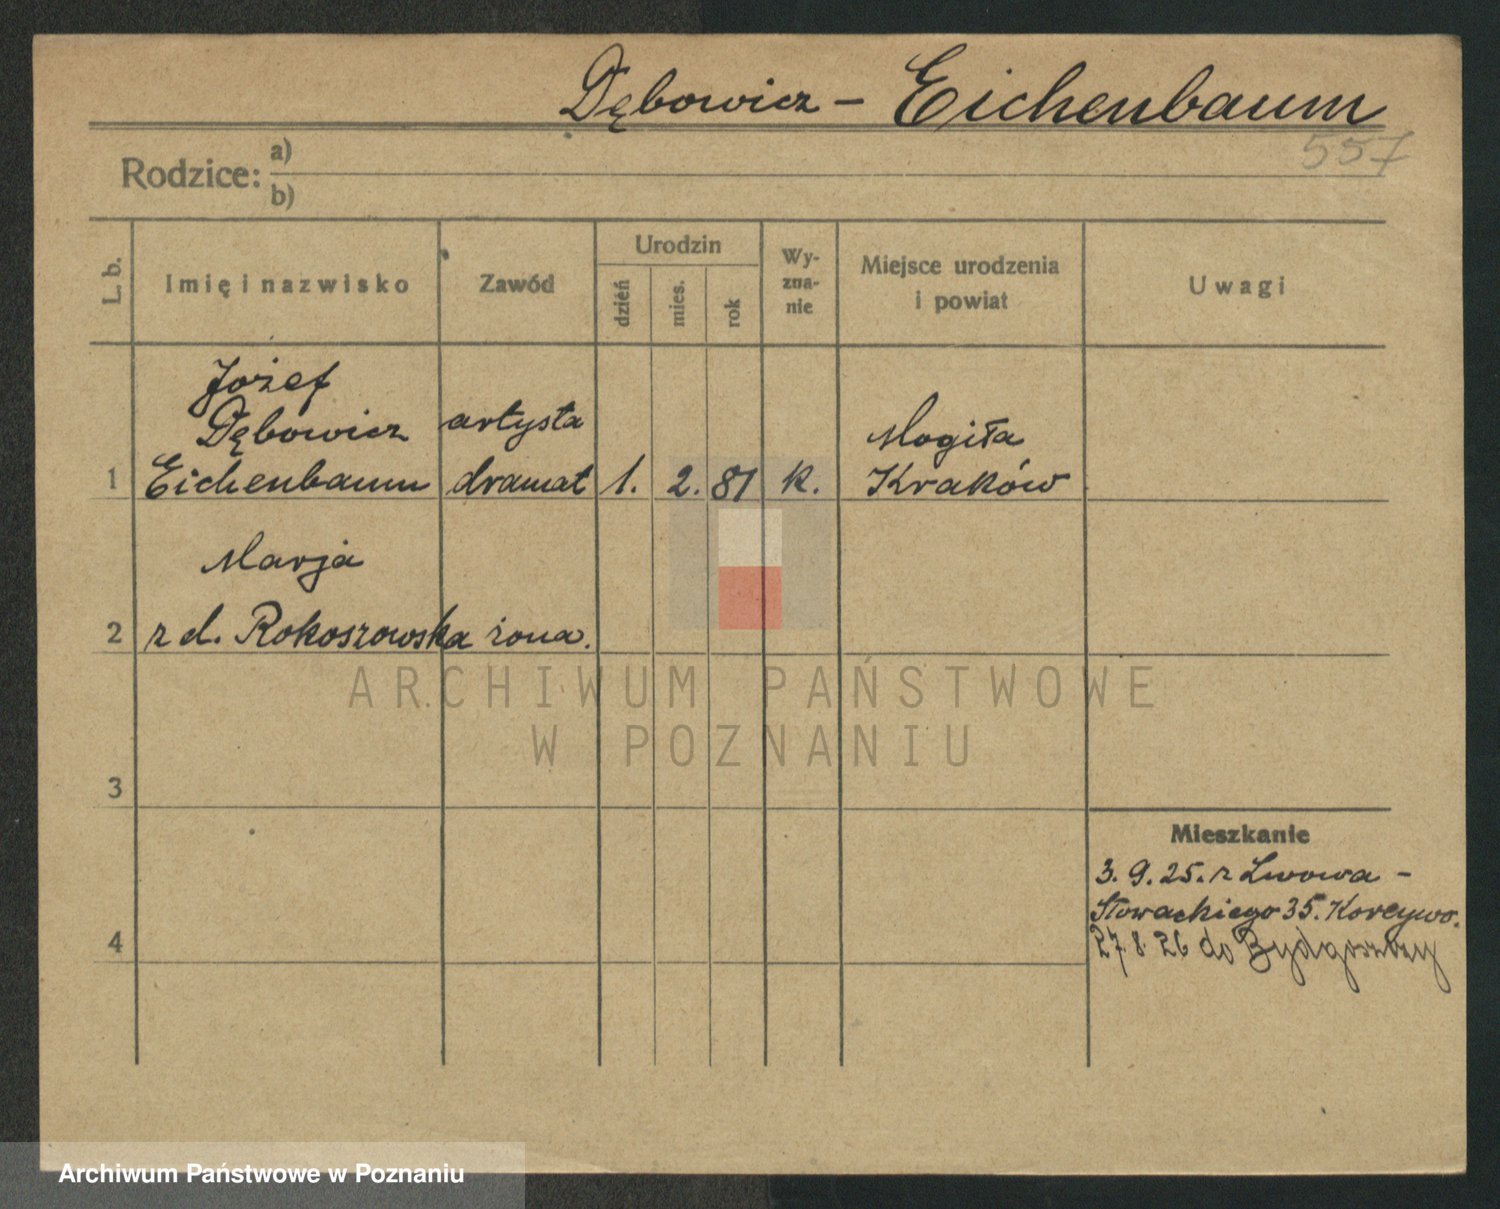 Dębowicz - Eichenbaum
557
Rodzice: a)
b)
L. b.
Imię i nazwisko
Zawód
Urodzin
dzień
mies.
rok
Wy-
zna-
nie
Miejsce urodzenia
i powiat
Uwagi
Józef
Dębowicz
artysta
Mogiła
1 Eichenbaum dramat 1. 2. 81 k. Kraków
Marja
2 z d. Rokoszowska żona.
ARCHIWUM PAŃSTWOWE
W POZNANIU
3
Mieszkanie
3. 9. 25. z Lwowa -
Słowackiego 35.
4
27 8 26 do Bydgoszczy
Archiwum Państwowe w Poznaniu